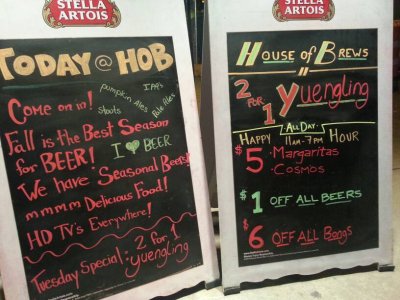 STELLA
ARTOIS
TODAY @ HOB
COME ON IN!
Pumpkin Ales
IPA's
Stouts
Pale Ales
Fall is the Best Season
for BEER!
I ♥ BEER
We have Seasonal Beers!
mmmm Delicious Food!
HD TV's Everywhere!
Tuesday Special: 2 for 1
yuengling
STELLA
ARTOIS
House of Brews
2 FOR 1
Yuengling
ALL DAY
HAPPY 11AM-7PM HOUR
$5 Margaritas
Cosmos
$1 OFF ALL BEERS
$6 OFF ALL Bongs